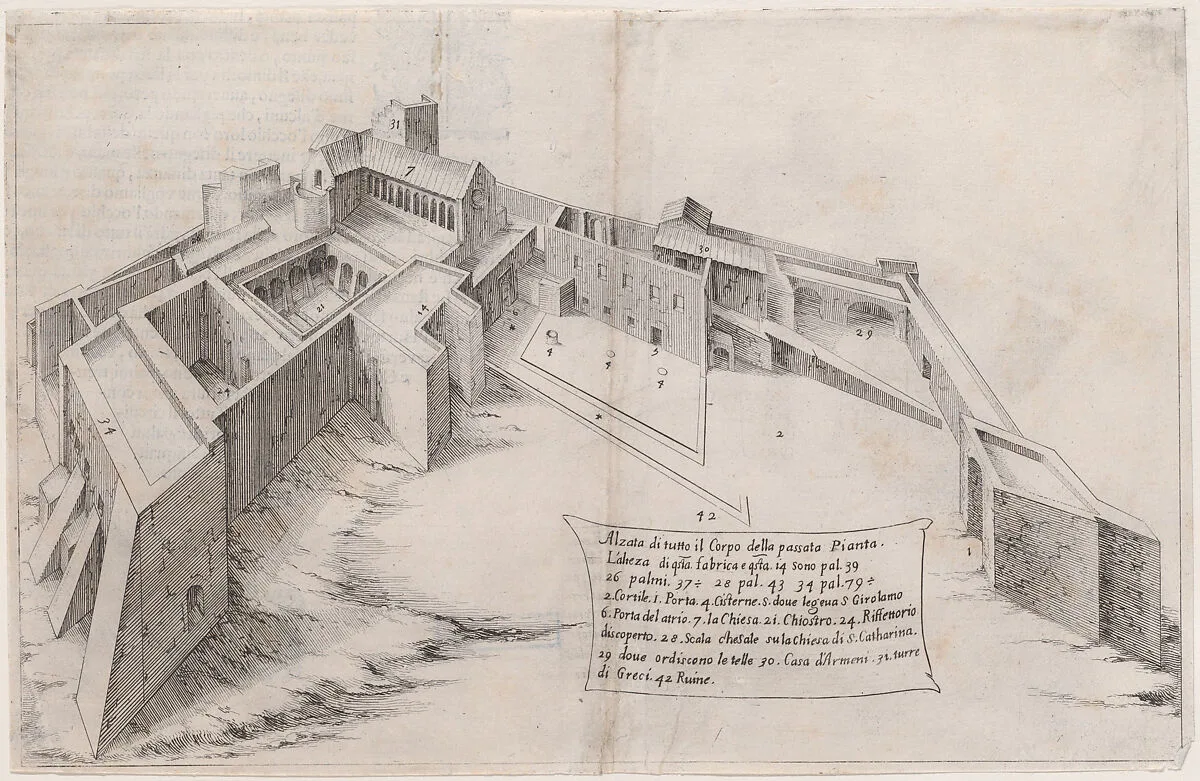 31
7
30
21
14
29
24
6
*
4
4
4
5
34
*
2
42
1
Alzata di tutto il Corpo della passata Pianta.
L'alteza di qsta fabrica e qsta. 14 sono pal. 39
26 palmi. 37 ÷ 28 pal. 43 34 pal. 79 ÷
2. Cortile. 1. Porta. 4. Cisterne. 5. doue legeua S. Girolamo
6. Porta del atrio. 7. la Chiesa. 21. Chiostro. 24. Riffettorio
discoperto. 28. Scala che sale su la chiesa di S. Catharina.
29 doue ordiscono le telle 30. Casa d'Armeni. 31. turre
di Greci. 42 Ruine.